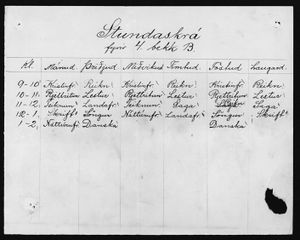 Stundaskrá
fyrir 4. bekk B.
Kl. Mánud. Þriðjud. Miðvikud. Fimtud. Föstud. Laugard.
9-10 Kristinfr. Reikn. Kristinfr. Reikn. Kristinfr. Reikn.
10-11 Rjettritun Lestur Rjettritun Lestur Rjettritun Lestur
11-12 Teiknun Landafr. Teiknun Saga Saga
12-1 Skrift Söngur Náttúrufr. Landafr. Söngur Skrift
1-2 Náttúrufr. Danska Danska